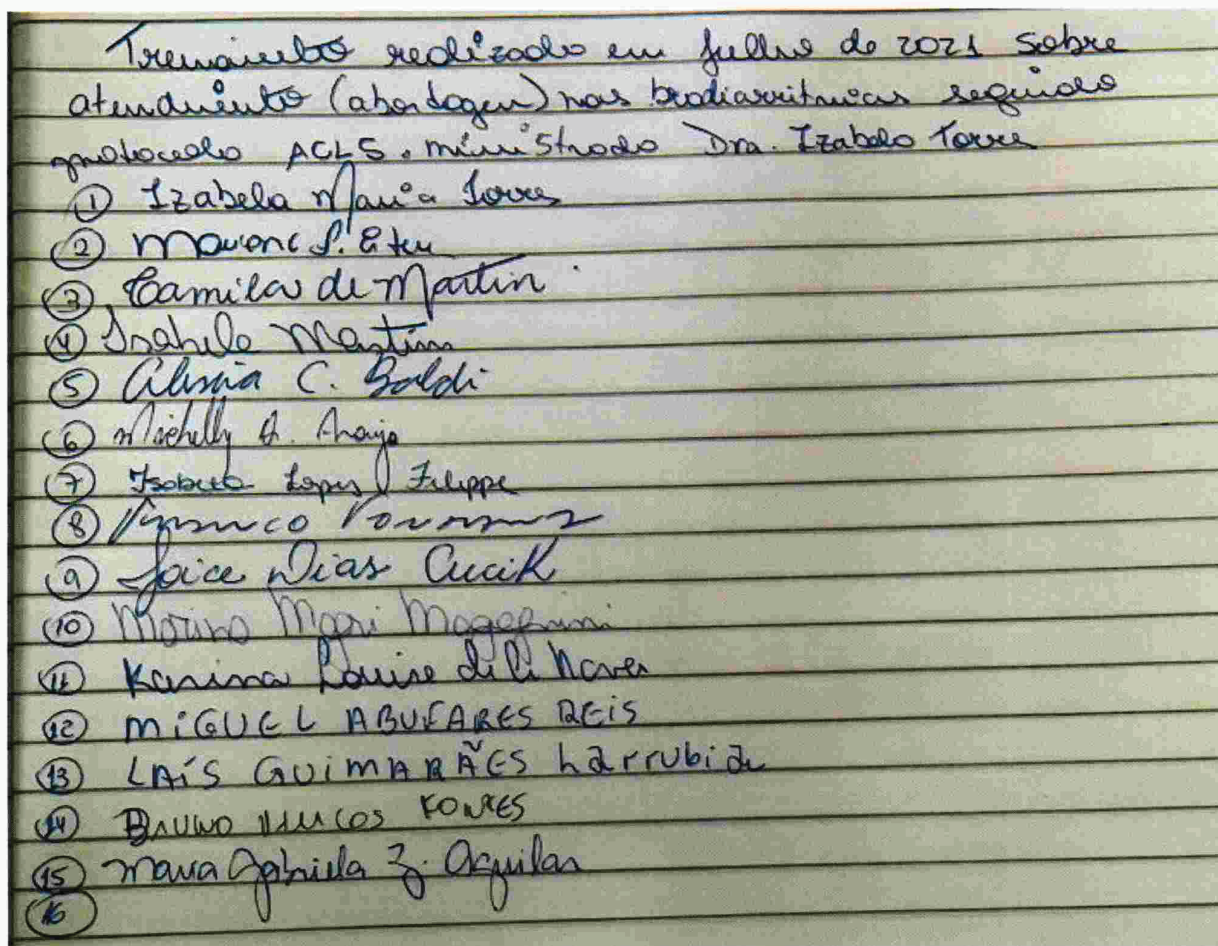 Treinamento realizado em Julho de 2021 sobre
atendimento (abordagem) nas bradiarritmias seguindo
protocolo ACLS. ministrado Dra. Izabela Torres
① Izabela Maria Torres
②
③ Camila de Martin
④ Isabela Martins
⑤ C. Baldi
⑥ Michelly A. Araujo
⑦ Lopes Filippe
⑧
⑨ Joice Dias Cucik
⑩ Marina
⑪ Karina Louise Naves
⑫ MIGUEL ABUFARES REIS
⑬ LAÍS GUIMARÃES Larrubia
⑭ BRUNO FONTES
⑮ Maria Gabriela Z. Aguilar
⑯